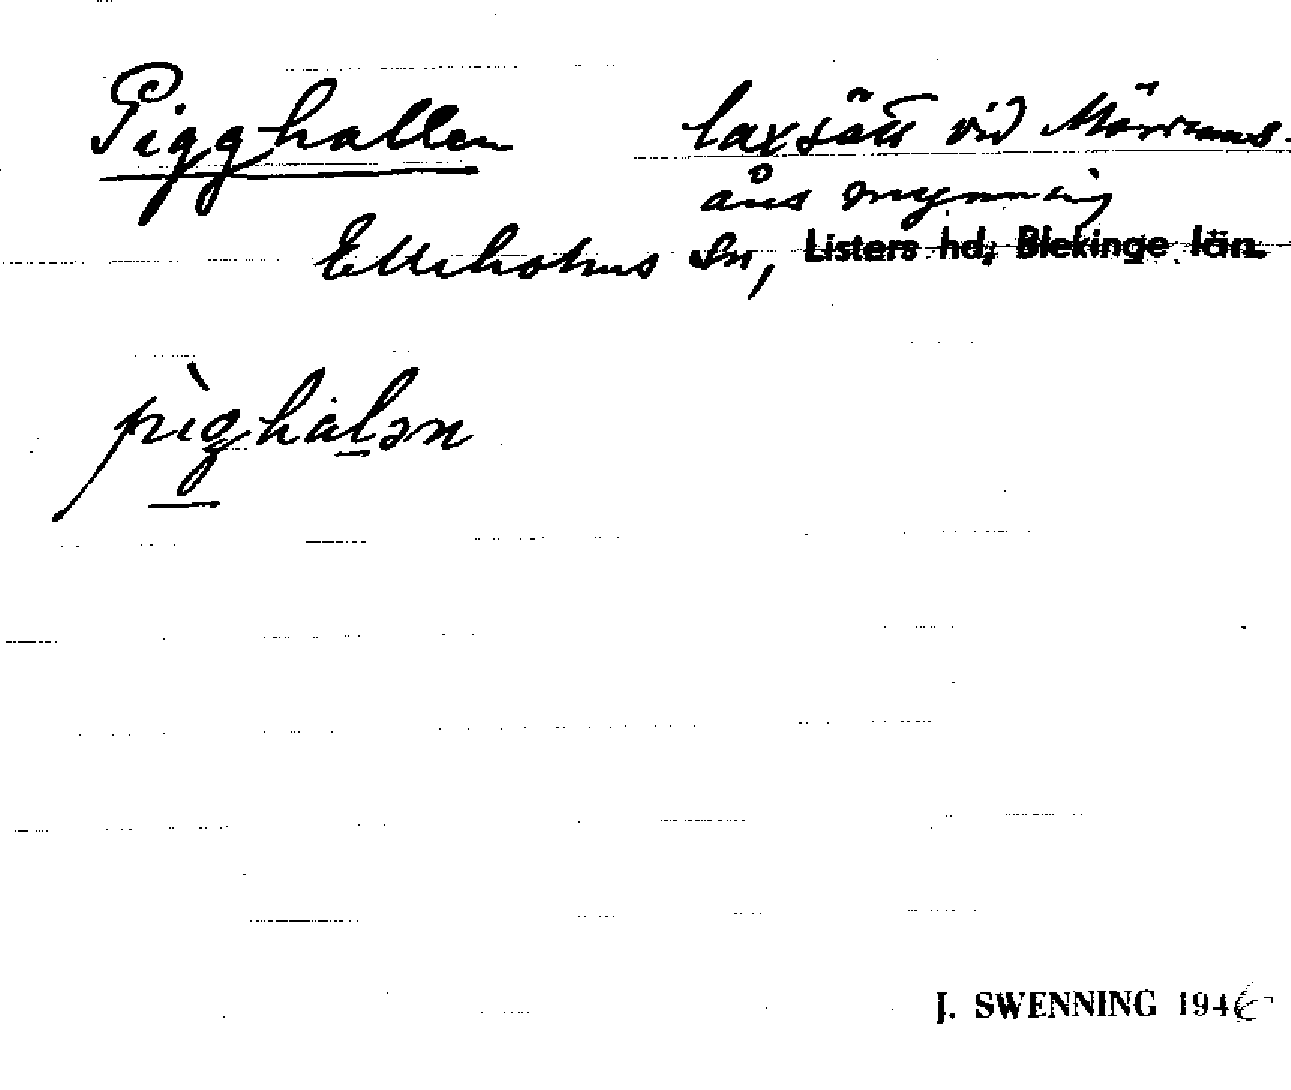 Pigghallen laxsätt vid Mörrums-
åns mynning
Elleholms sn, Listers hd, Blekinge län.
pìghalən
J. SWENNING 1946